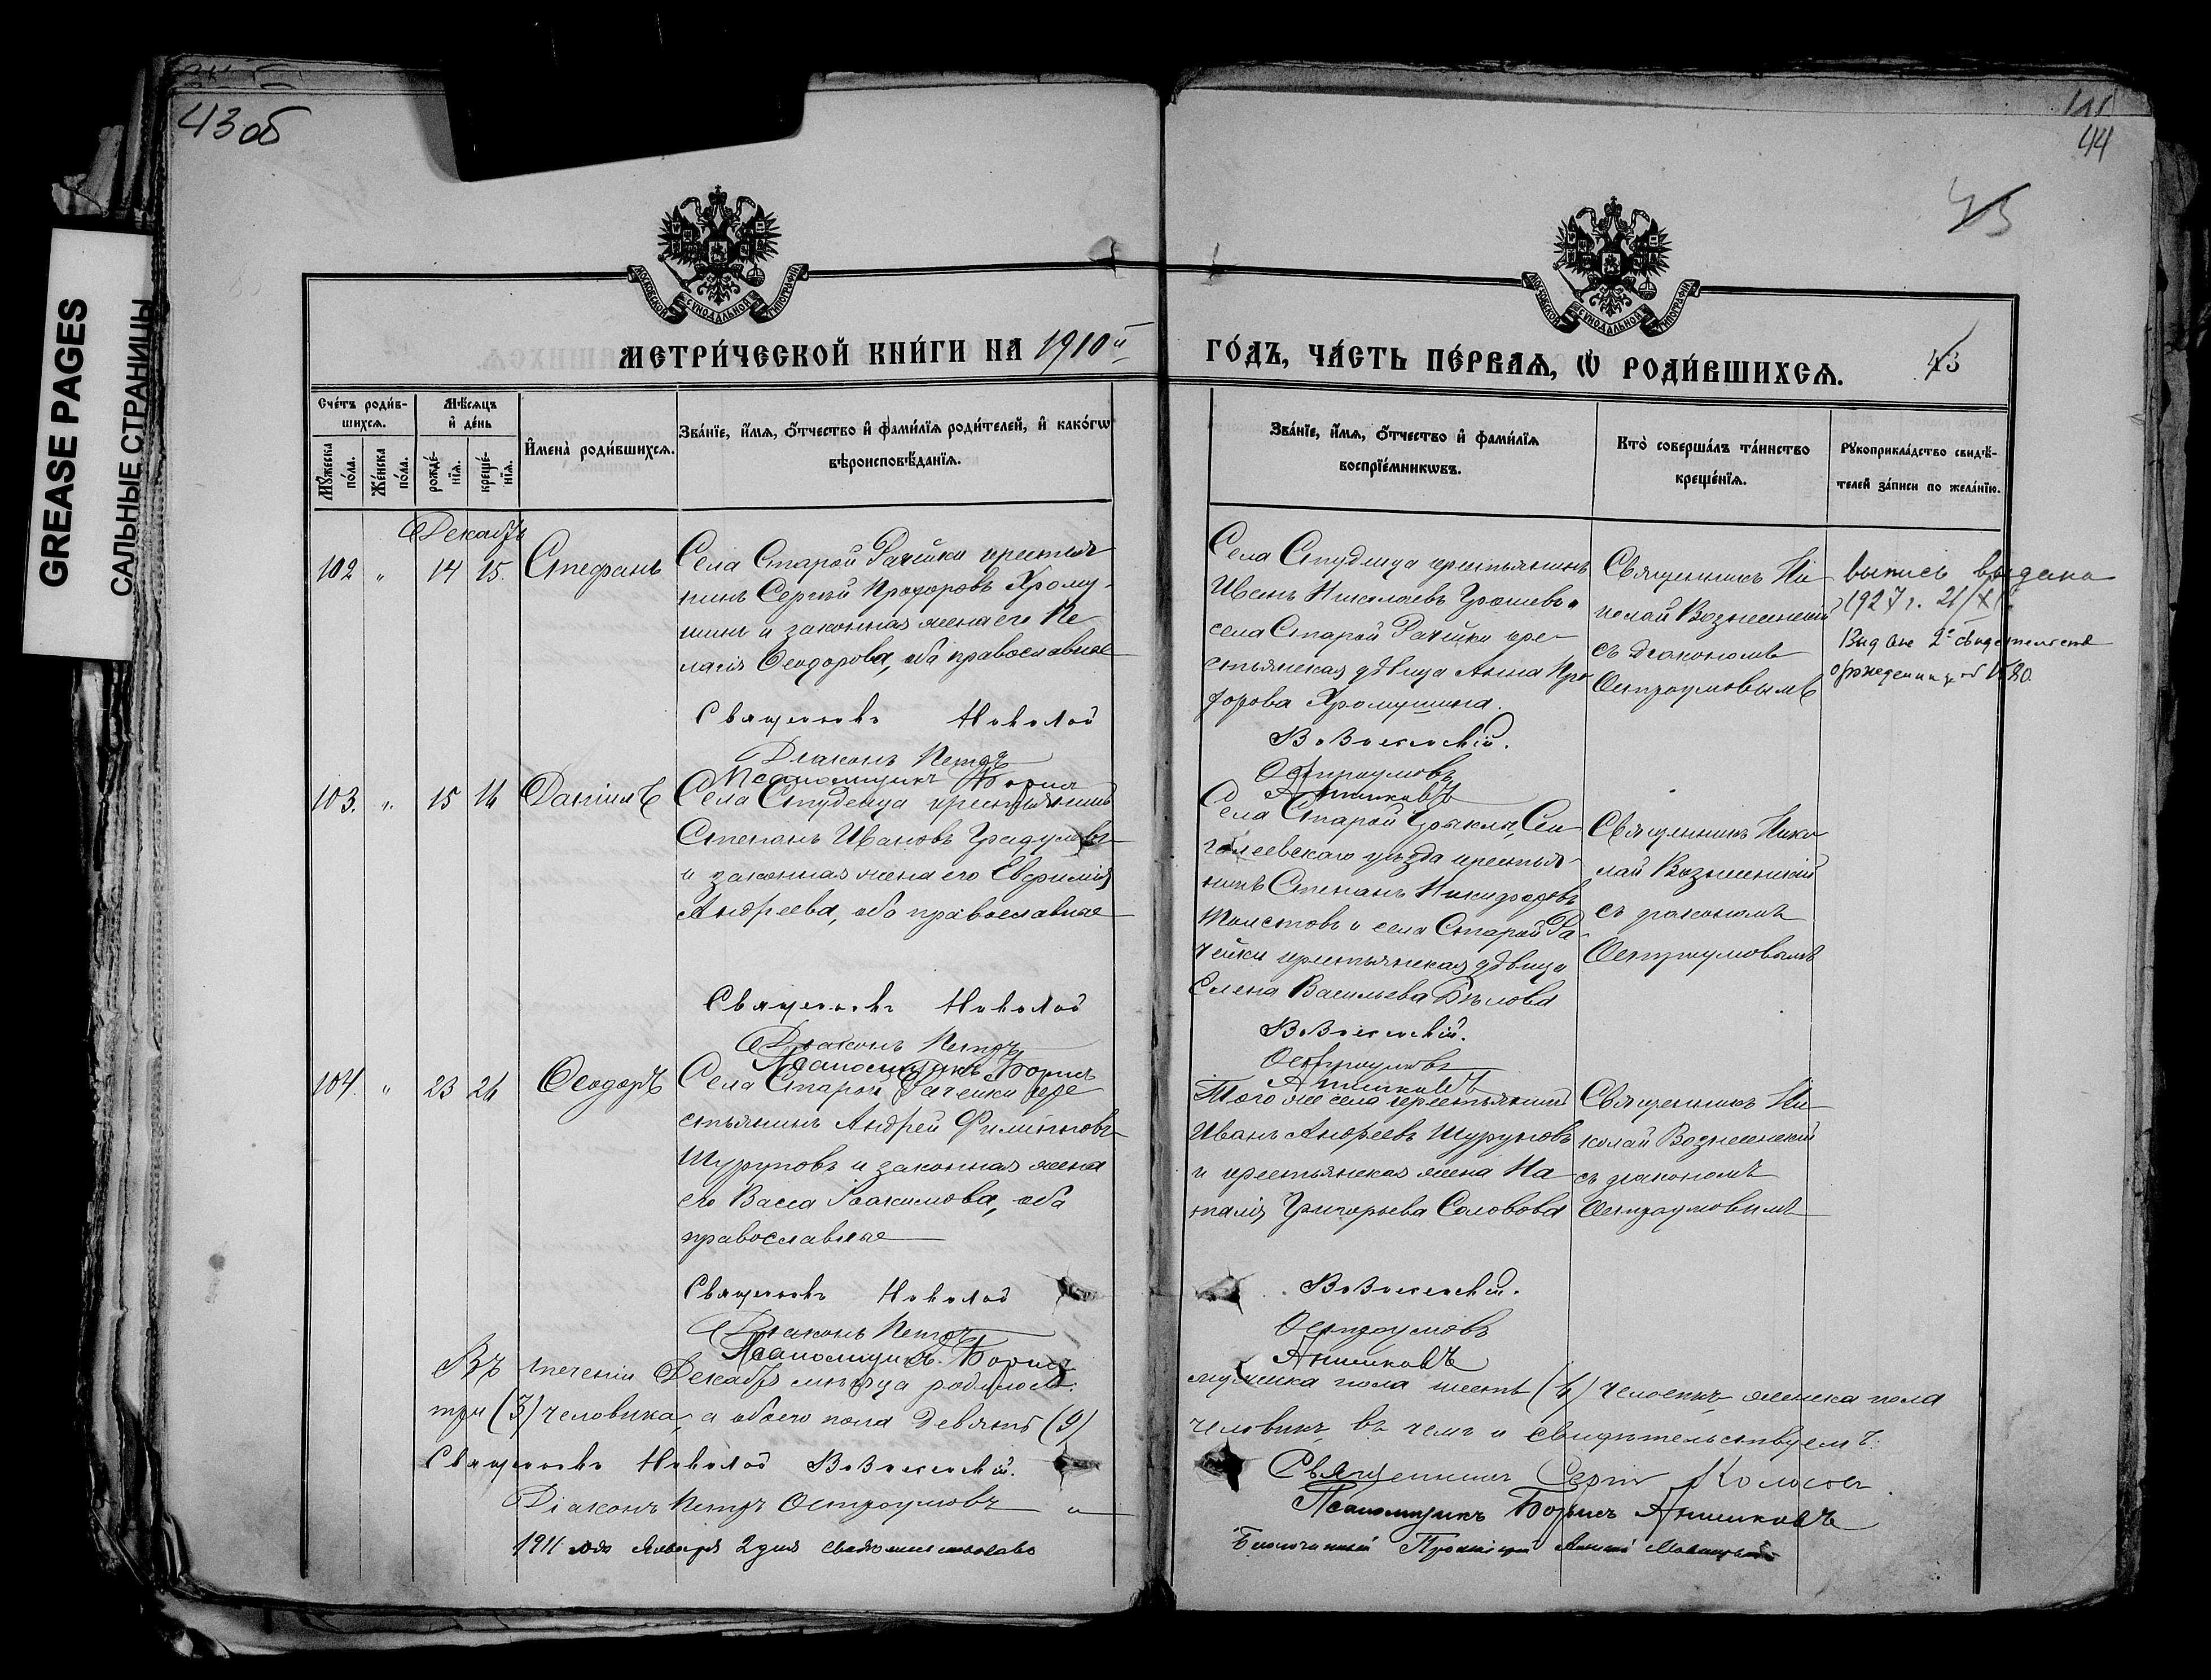 GREASE PAGES
САЛЬНЫЕ СТРАНИЦЫ
43 об
44
45
МОСКОВСКОЙ СѴНОДАЛЬНОЙ ТИПОГРАФІИ
МОСКОВСКОЙ СѴНОДАЛЬНОЙ ТИПОГРАФІИ
МЕТРИ́ЧЕСКОЙ КНИ́ГИ НА 1910й
ГО́ДЪ, ЧА́СТЬ ПЕ́РВАѦ, Ѡ҆ РОДИ́ВШИХСѦ.
43
Сче́тъ роди́в-
шихсѧ.
Мѣ́сѧцъ
и҆ де́нь
Мꙋ́жеска
по́ла.
Же́нска
по́ла.
рожде́-
нїѧ.
креще́-
нїѧ.
И҆мена̀ роди́вшихсѧ.
Зва́нїе, и҆́мѧ, ѻ҆́тчество и҆ фами́лїѧ роди́телей, и҆ како́гѡ
вѣроисповѣ́данїѧ.
Зва́нїе, и҆́мѧ, ѻ҆́тчество и҆ фами́лїѧ
воспрїе́мникѡвъ.
Кто̀ соверша́лъ та́инство
креще́нїѧ.
Рꙋкоприкла́дство свидѣ́-
телей за́писи по жела́нїю.
Декабрь
102 " 14 15. Стефанъ
Села Старой Рачейки крестья-
нинъ Сергѣй Прохоровъ Хрому-
шинъ и законная жена его Пе-
лагія Ѳеодорова, оба православные
Священникъ Николай
Діаконъ Петръ
Псаломщикъ Борисъ
Села Студенца крестьянинъ
Иванъ Николаевъ и
села Старой Рачейки кре-
стьянская дѣвица Анна Про-
хорова Хромушина.
Вознесенскій.
Остроумовъ
Аншиковъ
Священникъ Ни-
колай Вознесенскій
съ діакономъ
Остроумовымъ
выпись выдана
1927 г. 21/XI
Выдано 2е свидетельство
о рождении
103. " 15 16 Даніилъ
Села Студенца крестьянинъ
Степанъ Ивановъ
и законная жена его Евфимія
Андреева, оба православные
Священникъ Николай
Діаконъ Петръ
Псаломщикъ Борисъ
Села Старой Сен-
гилеевскаго уѣзда крестья-
нинъ Степанъ Никифоровъ
Толстовъ и села Старой Ра-
чейки крестьянская дѣвица
Елена Васильева Бѣлова
Вознесенскій.
Остроумовъ
Аншиковъ
Священникъ Нико-
лай Вознесенскій
съ діакономъ
Остроумовымъ
104. " 23 26 Ѳеодоръ
Села Старой Рачейки кре-
стьянинъ Андрей Филипповъ
Шуруповъ и законная жена
его Васса Іоакимова, оба
православные
Священникъ Николай
Діаконъ Петръ
Псаломщикъ Борисъ
Того же села крестьянинъ
Иванъ Андреевъ Шуруповъ
и крестьянская жена На-
талія Григорьева Соловова
Вознесенскій.
Остроумовъ
Аншиковъ
Священникъ Ни-
колай Вознесенскій
съ діакономъ
Остроумовымъ
Въ теченіи Декабрь мѣсяца родилось:
мужеска пола шесть (6) человѣкъ женска пола
три (3) человѣка, а обоего пола девять (9)
человѣкъ, въ чемъ и свидѣтельствуемъ:
Священникъ Николай Вознесенскій.
Священникъ Сергій Колосовъ.
Діаконъ Петръ Остроумовъ
Псаломщикъ Борисъ Аншиковъ
1911 года Января 2 дня свидѣтельствовалъ
Благочинный Протоіерей